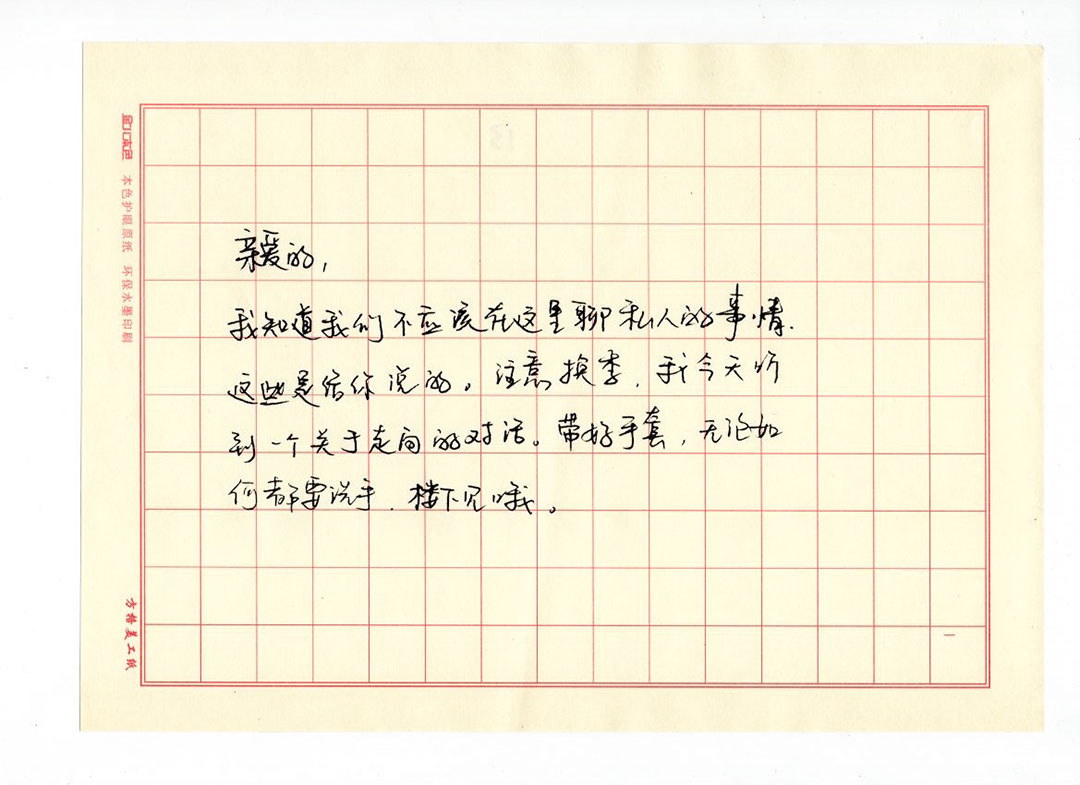 本色护眼原纸 环保水墨印刷
方格美工纸
亲爱的,
我知道我们不应该在这里聊私人的事情.
这些是给你说的。注意换季,我今天听
到一个关于走向的对话。带好手套,无论如
何都要洗手.楼下见哦。